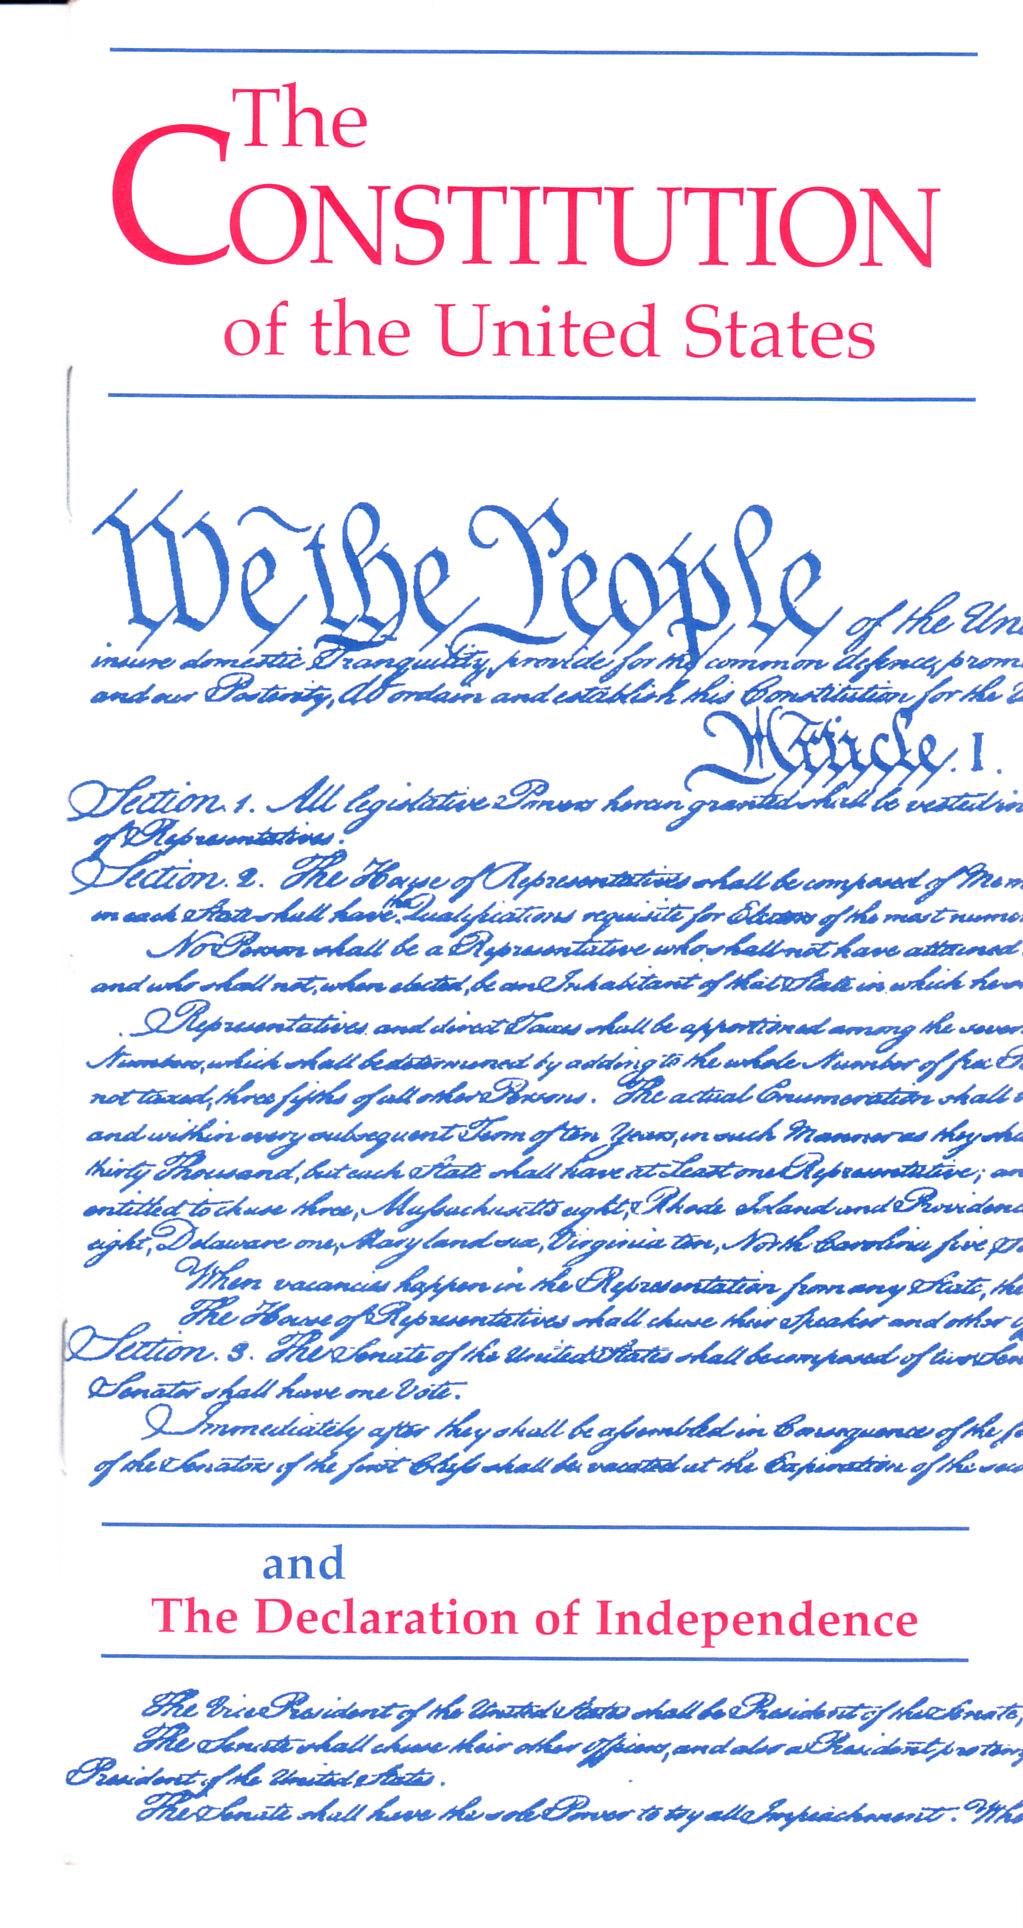 The
CONSTITUTION
of the United States
We the People of the Uni
insure domestic Tranquility, provide for the common defence, promo
and our Posterity, do ordain and establish this Constitution for the U
Article. I.
Section. 1. All legislative Powers herein granted shall be vested in
of Representatives.
Section. 2. The House of Representatives shall be composed of Mem
in each State shall have the Qualifications requisite for Electors of the most numer
No Person shall be a Representative who shall not have attained
and who shall not, when elected, be an Inhabitant of that State in which he s
Representatives and direct Taxes shall be apportioned among the sever
Numbers, which shall be determined by adding to the whole Number of free P
not taxed, three fifths of all other Persons. The actual Enumeration shall
and within every subsequent Term of ten Years, in such Manner as they sha
thirty Thousand, but each State shall have at Least one Representative; an
entitled to chuse three, Massachusetts eight, Rhode Island and Providenc
eight, Delaware one, Maryland six, Virginia ten, North Carolina five, S
When vacancies happen in the Representation from any State, the
The House of Representatives shall chuse their Speaker and other O
Section. 3. The Senate of the United States shall be composed of two Sen
Senator shall have one Vote.
Immediately after they shall be assembled in Consequence of the fi
of the Senators of the first Class shall be vacated at the Expiration of the seco
and
The Declaration of Independence
The Vice President of the United States shall be President of the Senate,
The Senate shall chuse their other Officers, and also a President pro temp
President of the United States.
The Senate shall have the sole Power to try all Impeachments. Whe